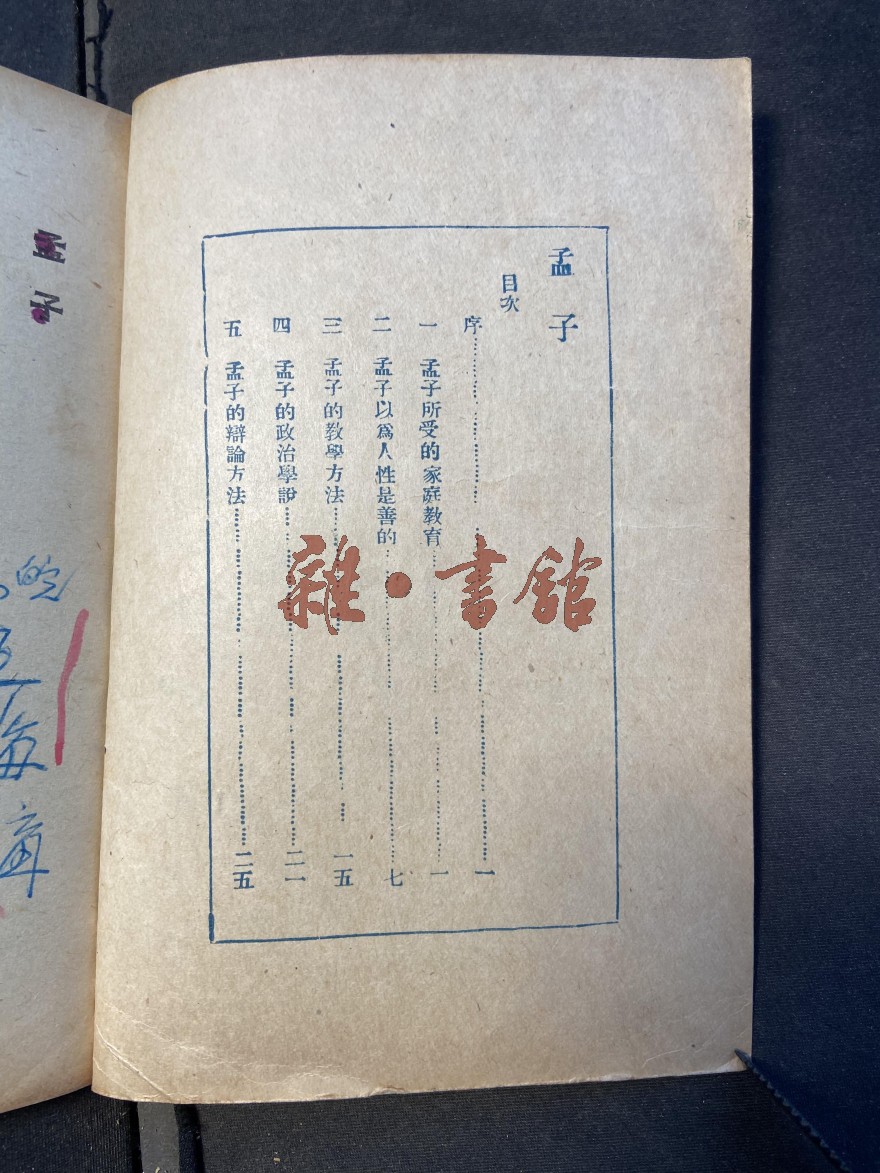 孟子
目次
序 一
一 孟子所受的家庭教育 一
二 孟子以爲人性是善的 七
三 孟子的教學方法 一五
四 孟子的政治學說 二一
五 孟子的辯論方法 二五
雜·書館
孟子